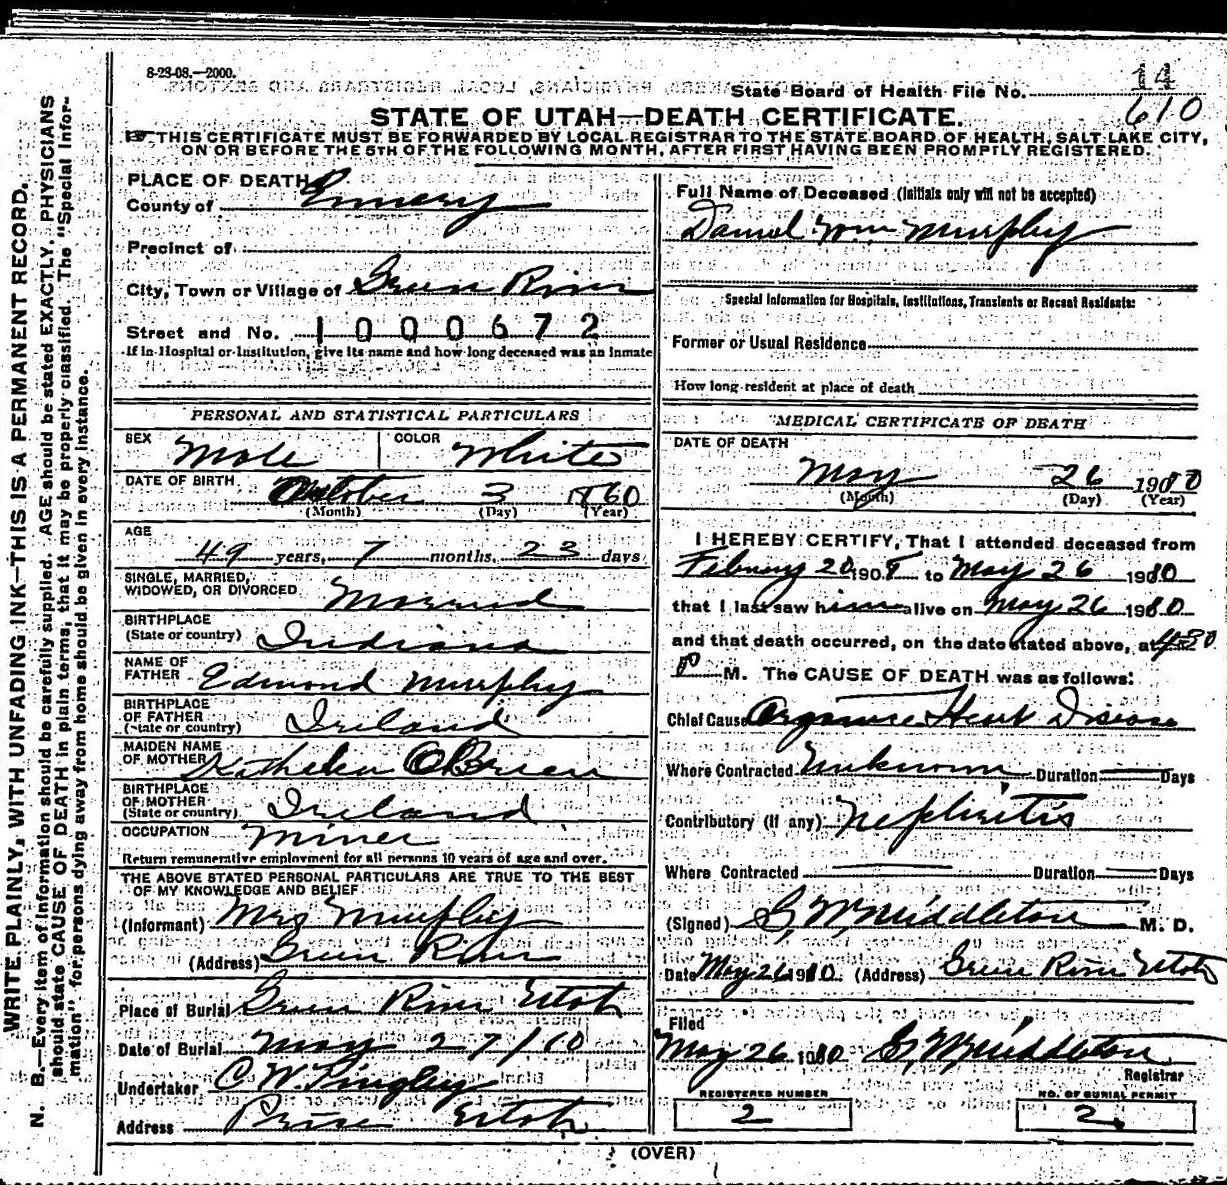 8-23-08.—2000.
State Board of Health File No. 14
610
STATE OF UTAH—DEATH CERTIFICATE.
THIS CERTIFICATE MUST BE FORWARDED BY LOCAL REGISTRAR TO THE STATE BOARD OF HEALTH, SALT LAKE CITY,
ON OR BEFORE THE 5TH OF THE FOLLOWING MONTH, AFTER FIRST HAVING BEEN PROMPTLY REGISTERED.
WRITE PLAINLY, WITH UNFADING INK—THIS IS A PERMANENT RECORD.
N. B.—Every item of information should be carefully supplied. AGE should be stated EXACTLY. PHYSICIANS
should state CAUSE OF DEATH in plain terms, that it may be properly classified. The "Special Infor-
mation" for persons dying away from home should be given in every instance.
PLACE OF DEATH
County of Emery
Precinct of
City, Town or Village of Green River
Street and No. 1000672
If in Hospital or Institution, give its name and how long deceased was an inmate
PERSONAL AND STATISTICAL PARTICULARS
SEX Male COLOR White
DATE OF BIRTH October 3 1860
(Month) (Day) (Year)
AGE
49 years, 7 months, 23 days
SINGLE, MARRIED,
WIDOWED, OR DIVORCED Married
BIRTHPLACE
(State or country) Indiana
NAME OF
FATHER Edmond Murphy
BIRTHPLACE
OF FATHER
(State or country) Ireland
MAIDEN NAME
OF MOTHER Kathelen OBrien
BIRTHPLACE
OF MOTHER
(State or country) Ireland
OCCUPATION Miner
Return remunerative employment for all persons 10 years of age and over.
THE ABOVE STATED PERSONAL PARTICULARS ARE TRUE TO THE BEST
OF MY KNOWLEDGE AND BELIEF
(Informant) Mrs Murphy
(Address) Green River
Place of Burial Green River Utah
Date of Burial May 27/10
Undertaker C. W.
Address Price Utah
Full Name of Deceased (Initials only will not be accepted)
Daniel Wm Murphy
Special Information for Hospitals, Institutions, Transients or Recent Residents:
Former or Usual Residence
How long resident at place of death
MEDICAL CERTIFICATE OF DEATH
DATE OF DEATH
May 26 1910
(Month) (Day) (Year)
I HEREBY CERTIFY, That I attended deceased from
February 20 190 to May 26 1910
that I last saw him alive on May 26 1910
and that death occurred, on the date stated above, at 4:30
P M. The CAUSE OF DEATH was as follows:
Chief Cause Organic Heart Disease
Where Contracted Unknown Duration Days
Contributory (If any) Nephiritis
Where Contracted Duration Days
(Signed) G. W. Middleton M. D.
Date May 26 1910 (Address) Green River Utah
Filed
May 26 1910 G. W. Middleton
Registrar
REGISTERED NUMBER
2
NO. OF BURIAL PERMIT
2
(OVER)